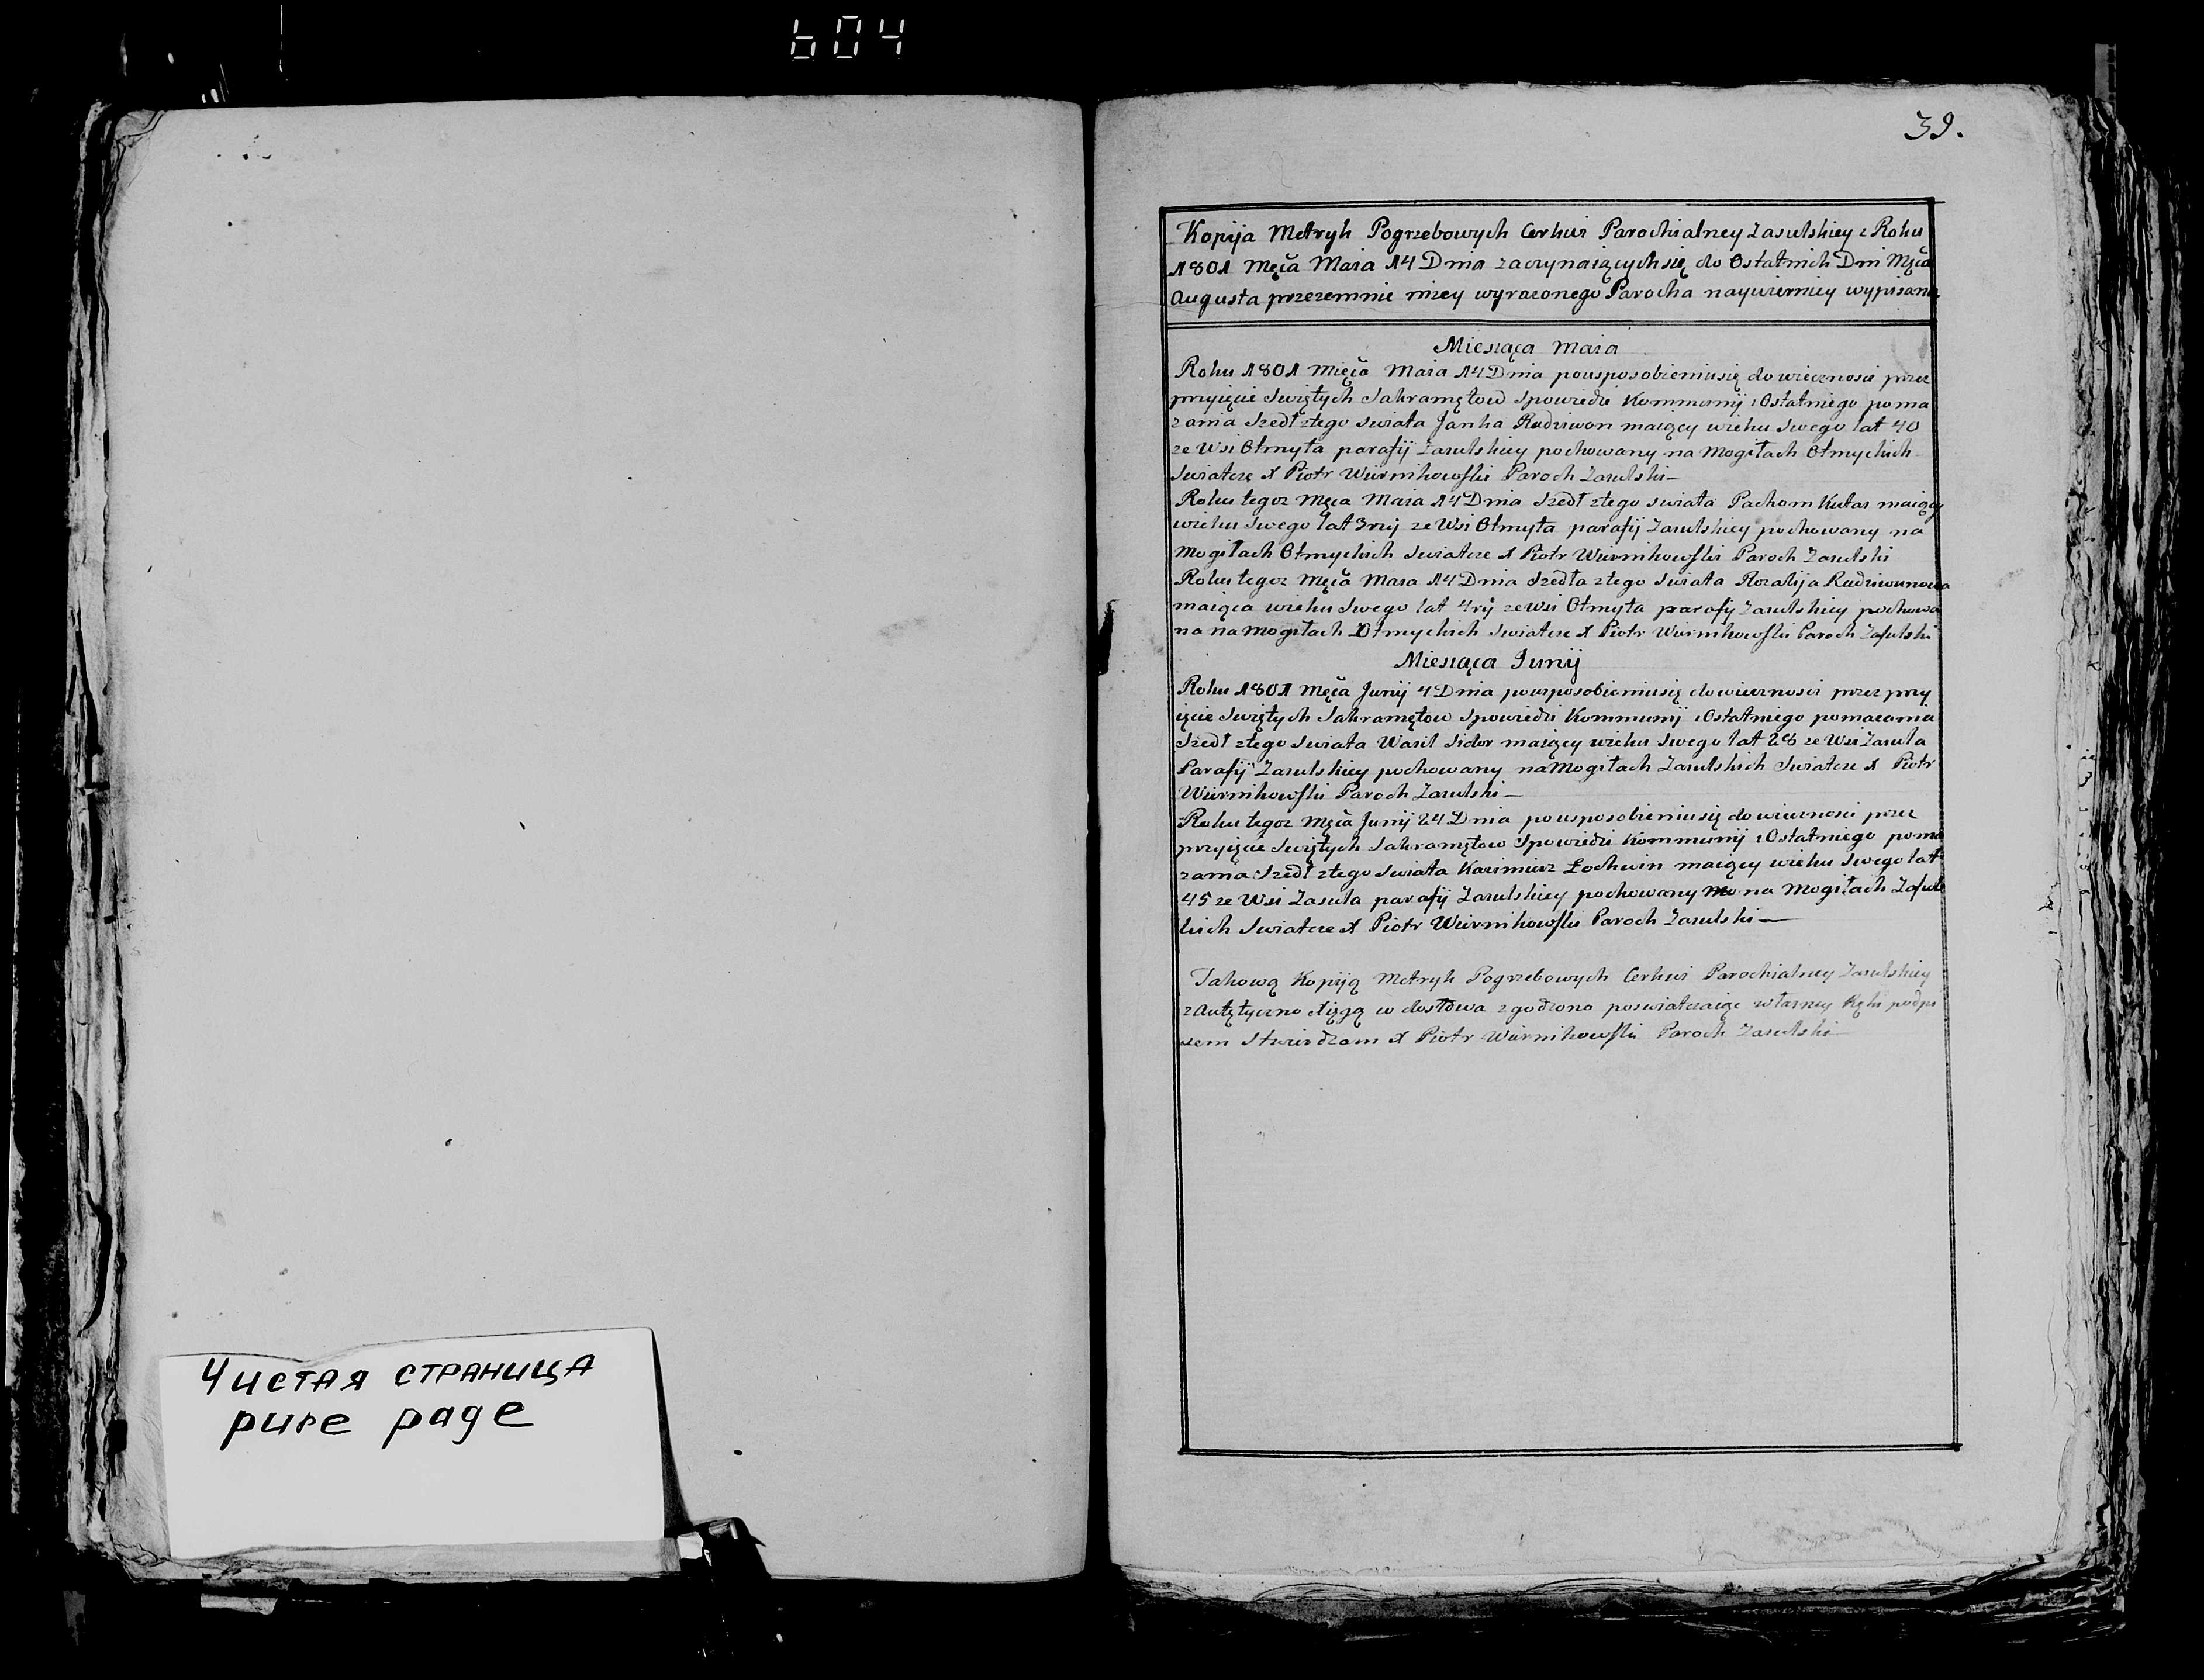 604
39.
Kopija Metryk Pogrzebowych Cerkwi Parochialney Zasulskiey z Roku
1801 Męca Maia 14 Dnia zaczynaiących się do Ostatnich Dni Męca
Augusta przezemnie niżey wyrażonego Parocha naywierniey wypisana
Miesiąca Maia
Roku 1801 Męca Maia 14 Dnia po usposobieniu się do wiecznosci przez
przyięcie Swiętych Sakramętow Spowiedzi Kommunij i Ostatniego poma
zania Szedł ztego Swiata Janka Radziwon maiący wieku Swego lat 40
ze Wsi Otmyta parafij Zasulskiey pochowany na Mogiłach Otmyckich
Swiatczę X Piotr Wiernikowski Paroch Zasulski—
Roku tegoz Męca Maia 14 Dnia Szedł ztego swiata Pachom Kutas maiący
wieku Swego lat 3rzy ze Wsi Otmyta parafij Zasulskiey pochowany na
Mogiłach Otmyckich Swiatcze X Piotr Wiernikowski Paroch Zasulski
Roku tegoz Męca Maia 14 Dnia Szedła ztego Swiata Rozalija Radziwonowa
maiąca wieku Swego lat 4ry ze Wsi Otmyta parafij Zasulskiey pochowa
na na Mogiłach Otmyckich Swiatcze X Piotr Wiernikowski Paroch Zasulski
Miesiąca Junij
Roku 1801 Męca Junij 4 Dnia po usposobieniu się do wiecznosci przez przy
ięcie Swiętych Sakramętow Spowiedzi Kommunij i Ostatniego pomazania
Szedł ztego Swiata Wasil Sidor maiący wieku Swego lat 28 ze Wsi Zasula
Parafij Zasulskiey pochowany na Mogiłach Zasulskich Swiatcze X Piotr
Wiernikowski Paroch Zasulski—
Roku tegoz Męca Junij 24 Dnia po usposobieniu się do wiecznosci przez
przyięcie Swiętych Sakramętow Spowiedzi Kommunij i Ostatniego poma
zania Szedł ztego Swiata Kazimierz Łochwin maiący wieku Swego lat
45 ze Wsi Zasula parafij Zasulskiey pochowany na Mogiłach Zasuls
kich Swiatcze X Piotr Wiernikowski Paroch Zasulski—
Takową Kopiją Metryk Pogrzebowych Cerkwi Parochialney Zasulskiey
z Autętyczno Xięgą w dosłowa zgodzono poswiatczaiąc własney Ręki podpi
sem Stwierdzam X Piotr Wiernikowski Paroch Zasulski
Чистая страница
pure page